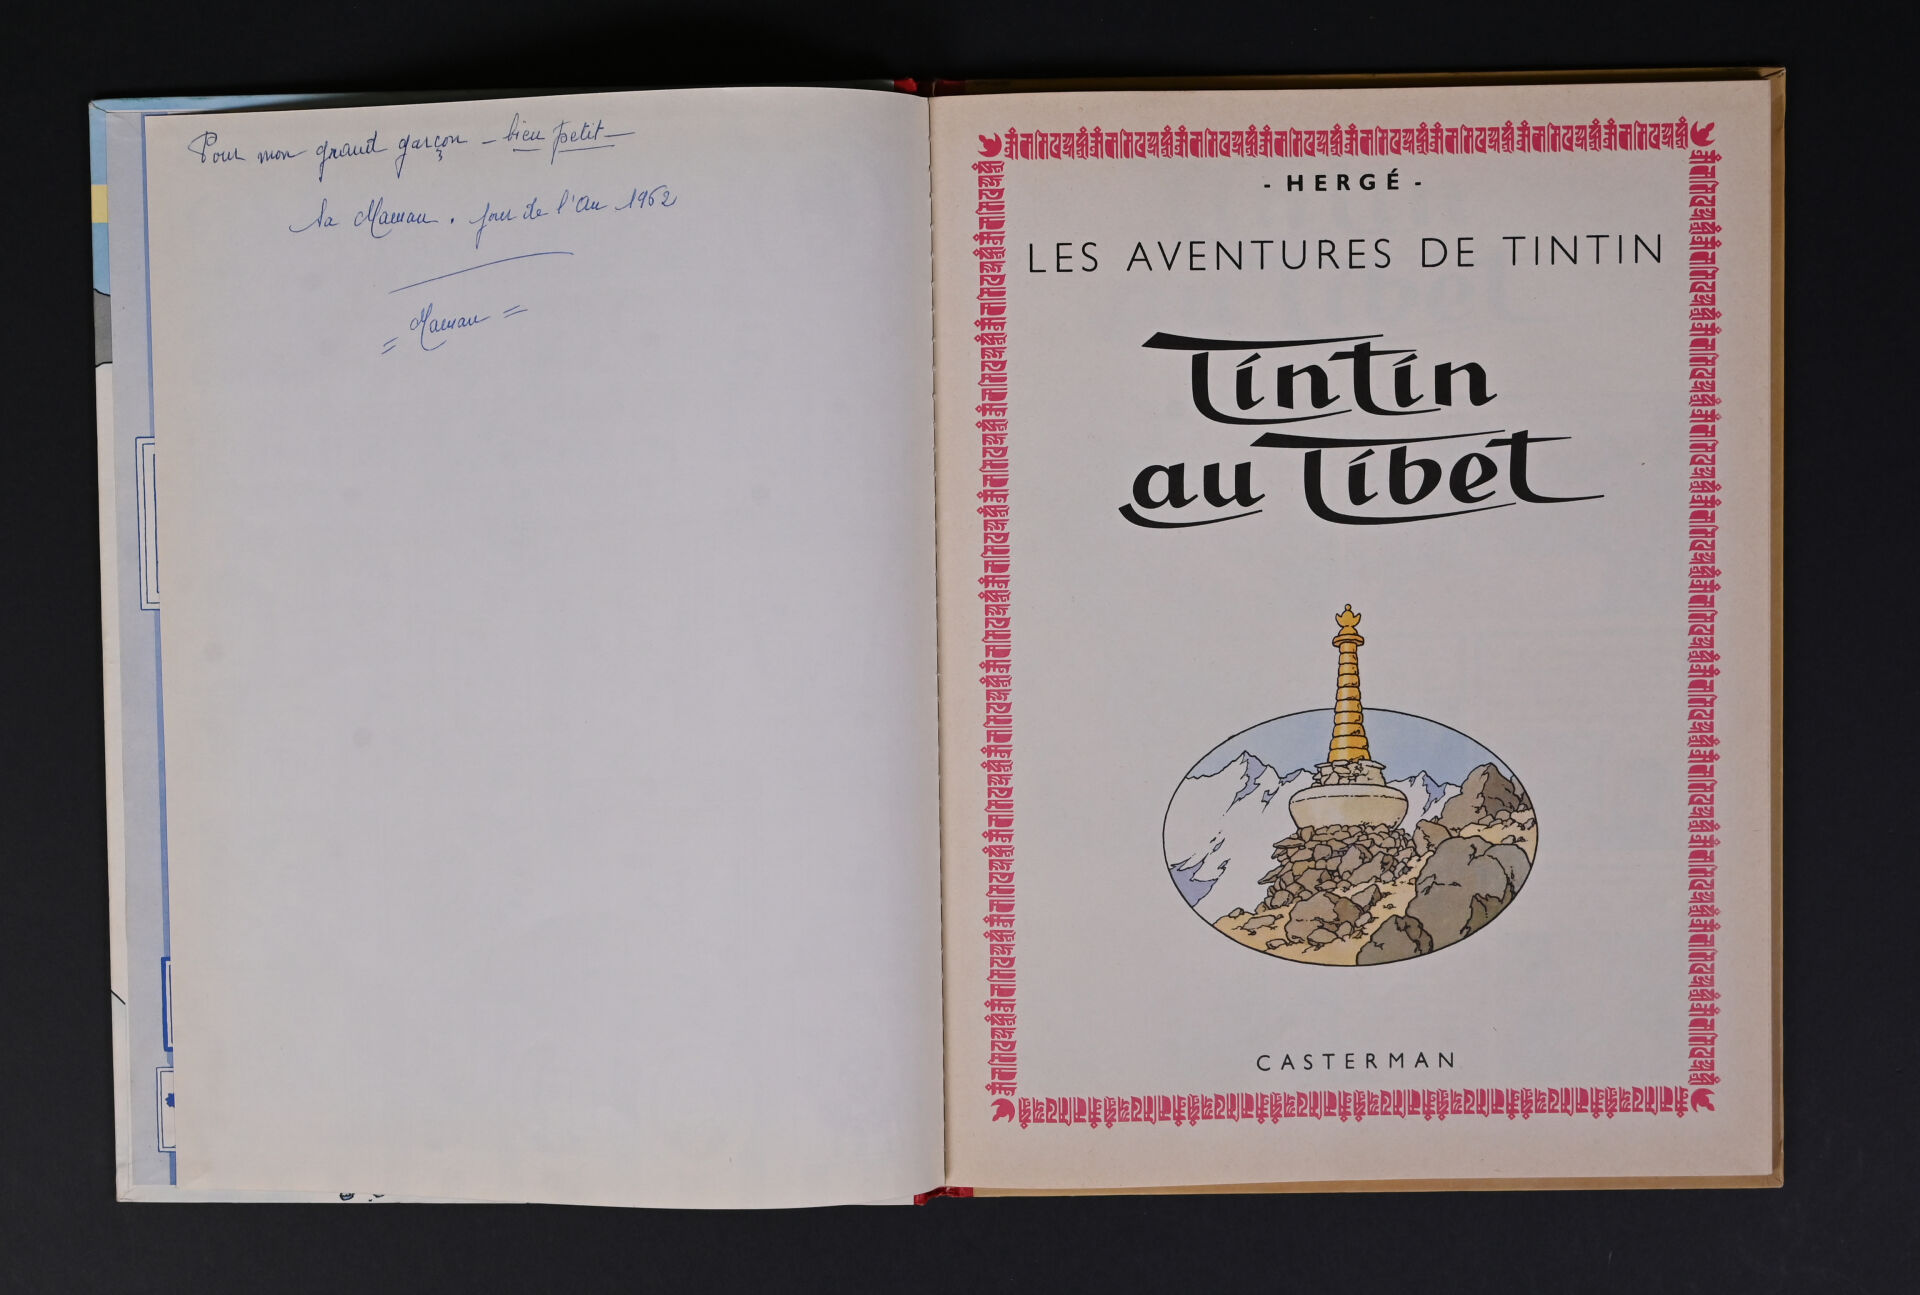 Pour mon grand garçon – bien petit –
Sa Maman. Jour de l'An 1962
= Maman =
- HERGÉ -
LES AVENTURES DE TINTIN
Tintin
au Tibet
CASTERMAN